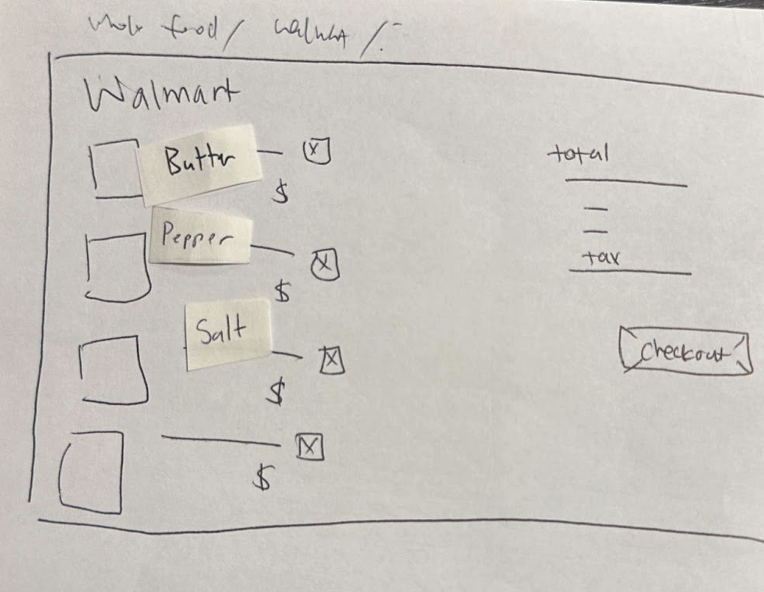 Whole food / walmart /
Walmart
Butter
X
$
Pepper
X
$
Salt
X
$
X
$
total
tax
Checkout